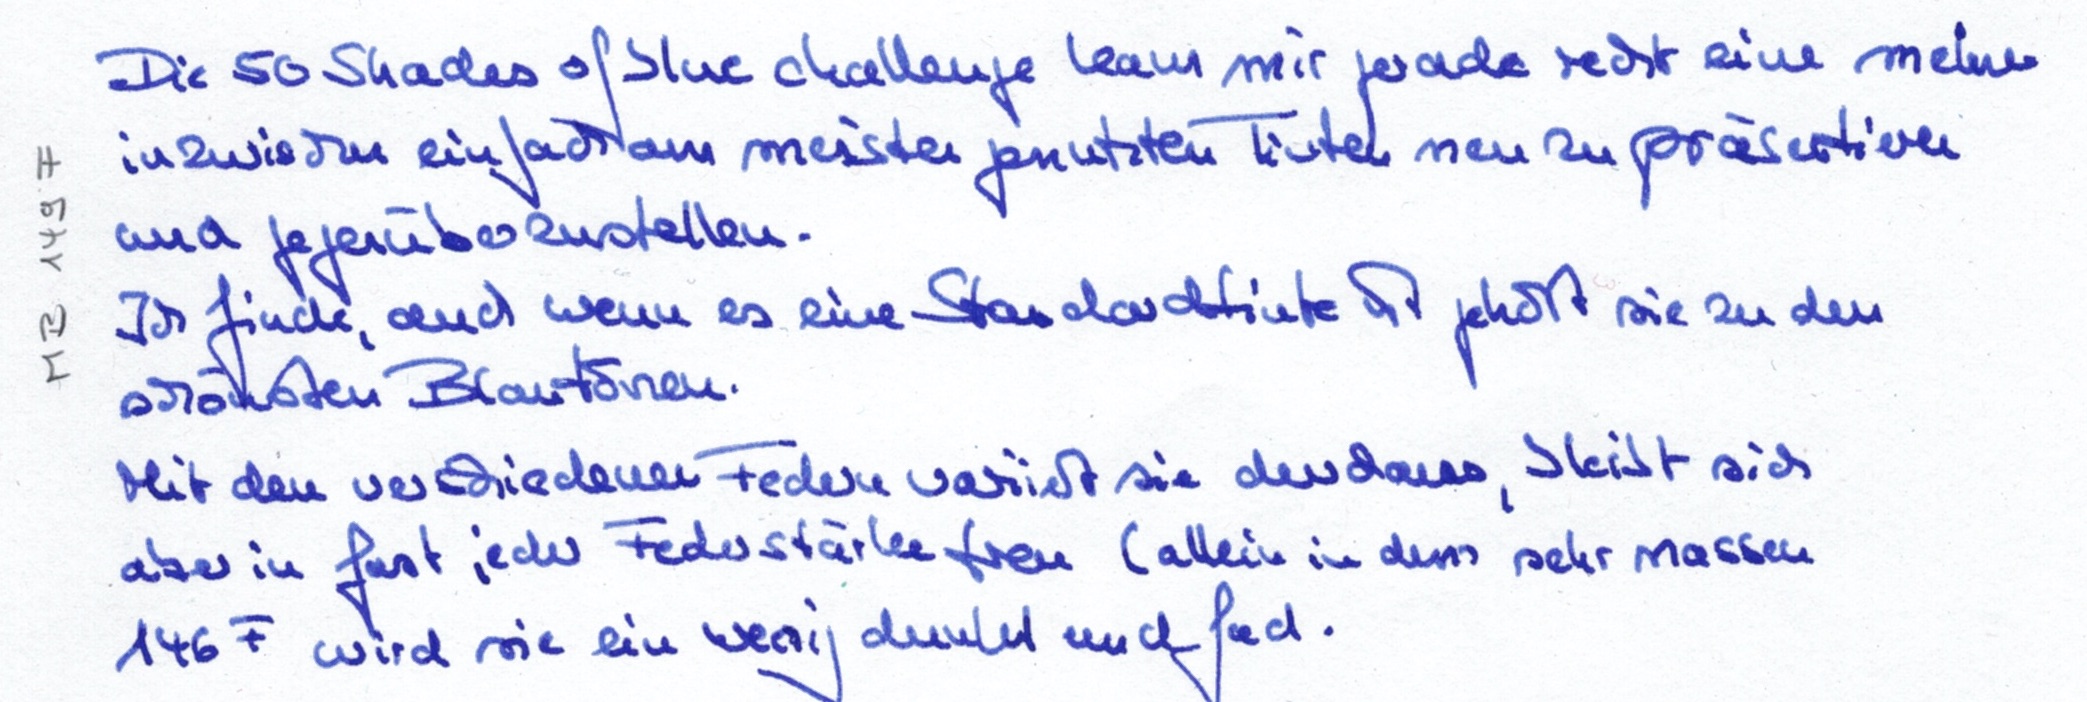 Die 50 Shades of blue challenge kam mir gerade recht eine meiner
inzwischen einfach am meisten genutzten Tinten neu zu präsentieren
und gegenüberzustellen.
Ich finde, auch wenn es eine Standardtinte ist gehört sie zu den
schönsten Blautönen.
Mit den verschiedenen Federn variiert sie durchaus, bleibt sich
aber in fast jeder Federstärke treu (allein in dem sehr nassen
146 F wird sie ein wenig dunkel und fad.
MB 149 F